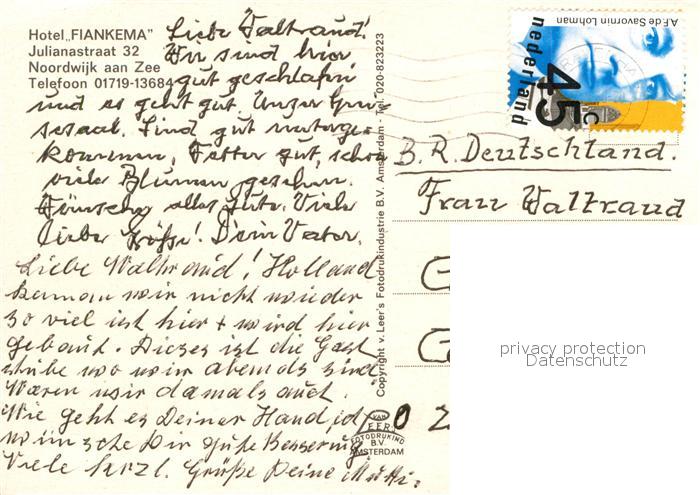 Hotel „FIANKEMA"
Julianastraat 32
Noordwijk aan Zee
Telefoon 01719-13684
Liebe Waltraud!
Wir sind hier
gut geschlafen
und es geht gut. Unser
Sind gut
kommen, Wetter gut, schon
viele Blumen gesehen.
Wünsche alles Gute. Viele
liebe Größe! Dein Vater.
Liebe Waltraud! Holland
kennen wir nicht wieder
so viel ist hier + wird hier
gebaut. Dieses ist die Gast
stube wo wir abends sind
Waren wir damals auch.
Wie geht es Deiner Hand, ich
wünsche Dir gute Besserung
Viele herzl. Grüße Deine Mutti.
Copyright v. Leer's Fotodrukindustrie B.V. Amsterdam - Tel. 020-823223
VAN
LEER'S
FOTODRUKIND
B.V.
AMSTERDAM
A.F. de Savornin Lohman
nederland
45 c
B.R. Deutschland.
Frau Waltraud
privacy protection
Datenschutz